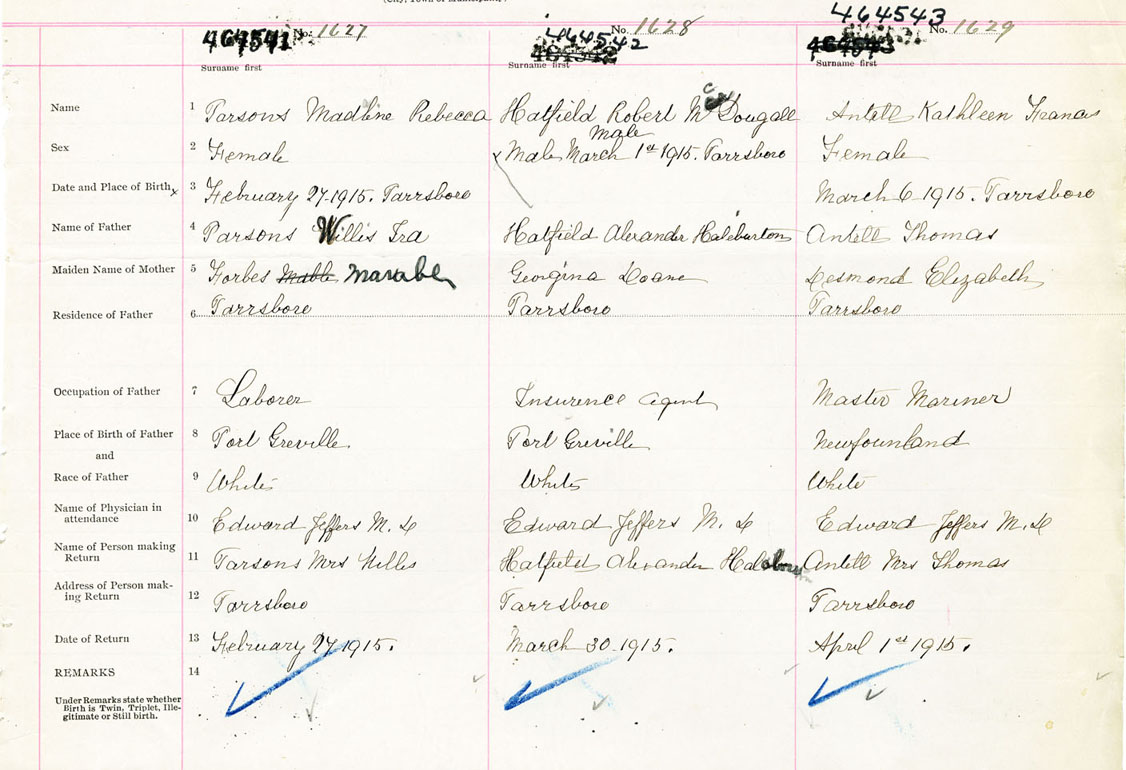 (City, Town or Municipality)
464541 No. 1627 464542 No. 1628 464543 No. 1629
Surname first Surname first Surname first
Name 1 Parsons Madline Rebecca Hatfield Robert Mc Dougall Antell Kathleen Francis
Male
Sex 2 Female Male March 1st 1915. Parrsboro Female
Date and Place of Birth x 3 February 27-1915. Parrsboro March 6-1915. Parrsboro
Name of Father 4 Parsons Willis Ira Hatfield Alexander Haleburton Antell Thomas
Maiden Name of Mother 5 Forbes Mable Marable Georgina Doane Desmond Elizabeth
Residence of Father 6 Parrsboro Parrsboro Parrsboro
Occupation of Father 7 Laborer Insurence agent Master Mariner
Place of Birth of Father 8 Port Greville Port Greville Newfounland
and
Race of Father 9 White White White
Name of Physician in
attendance 10 Edward Jeffers M. D Edward Jeffers M. D Edward Jeffers M. D
Name of Person making
Return 11 Parsons Mrs Willis Hatfield Alexander Antell Mrs Thomas
Address of Person mak-
ing Return 12 Parrsboro Parrsboro Parrsboro
Date of Return 13 February 27 1915. March 30-1915. April 1st 1915.
REMARKS 14
Under Remarks state whether
Birth is Twin, Triplet, Ille-
gitimate or Still birth.